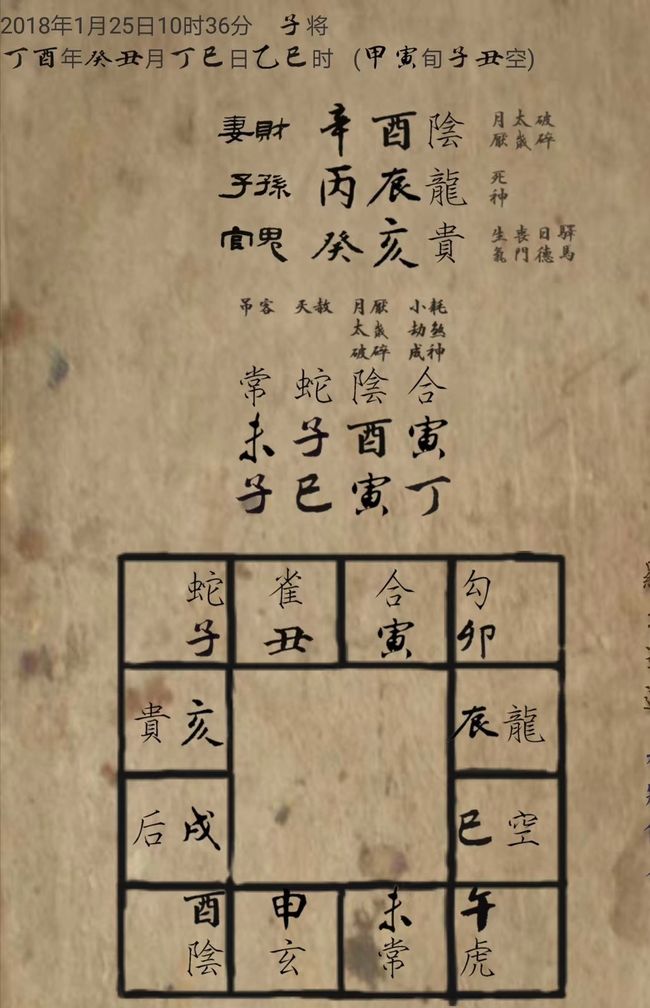 2018年1月25日10时36分 子将
丁酉年癸丑月丁巳日乙巳时 (甲寅旬子丑空)
妻財 辛酉陰 月厭 太歲 破碎
子孫 丙辰龍 死神
官鬼 癸亥貴 生氣 喪門 日德 驛馬
吊客 天赦 月厭 小耗
太歲 劫煞
破碎 成神
常 蛇 陰 合
未 子 酉 寅
子 巳 寅 丁
蛇 雀 合 勾
子 丑 寅 卯
貴亥 辰龍
后戌 巳空
酉 申 未 午
陰 玄 常 虎